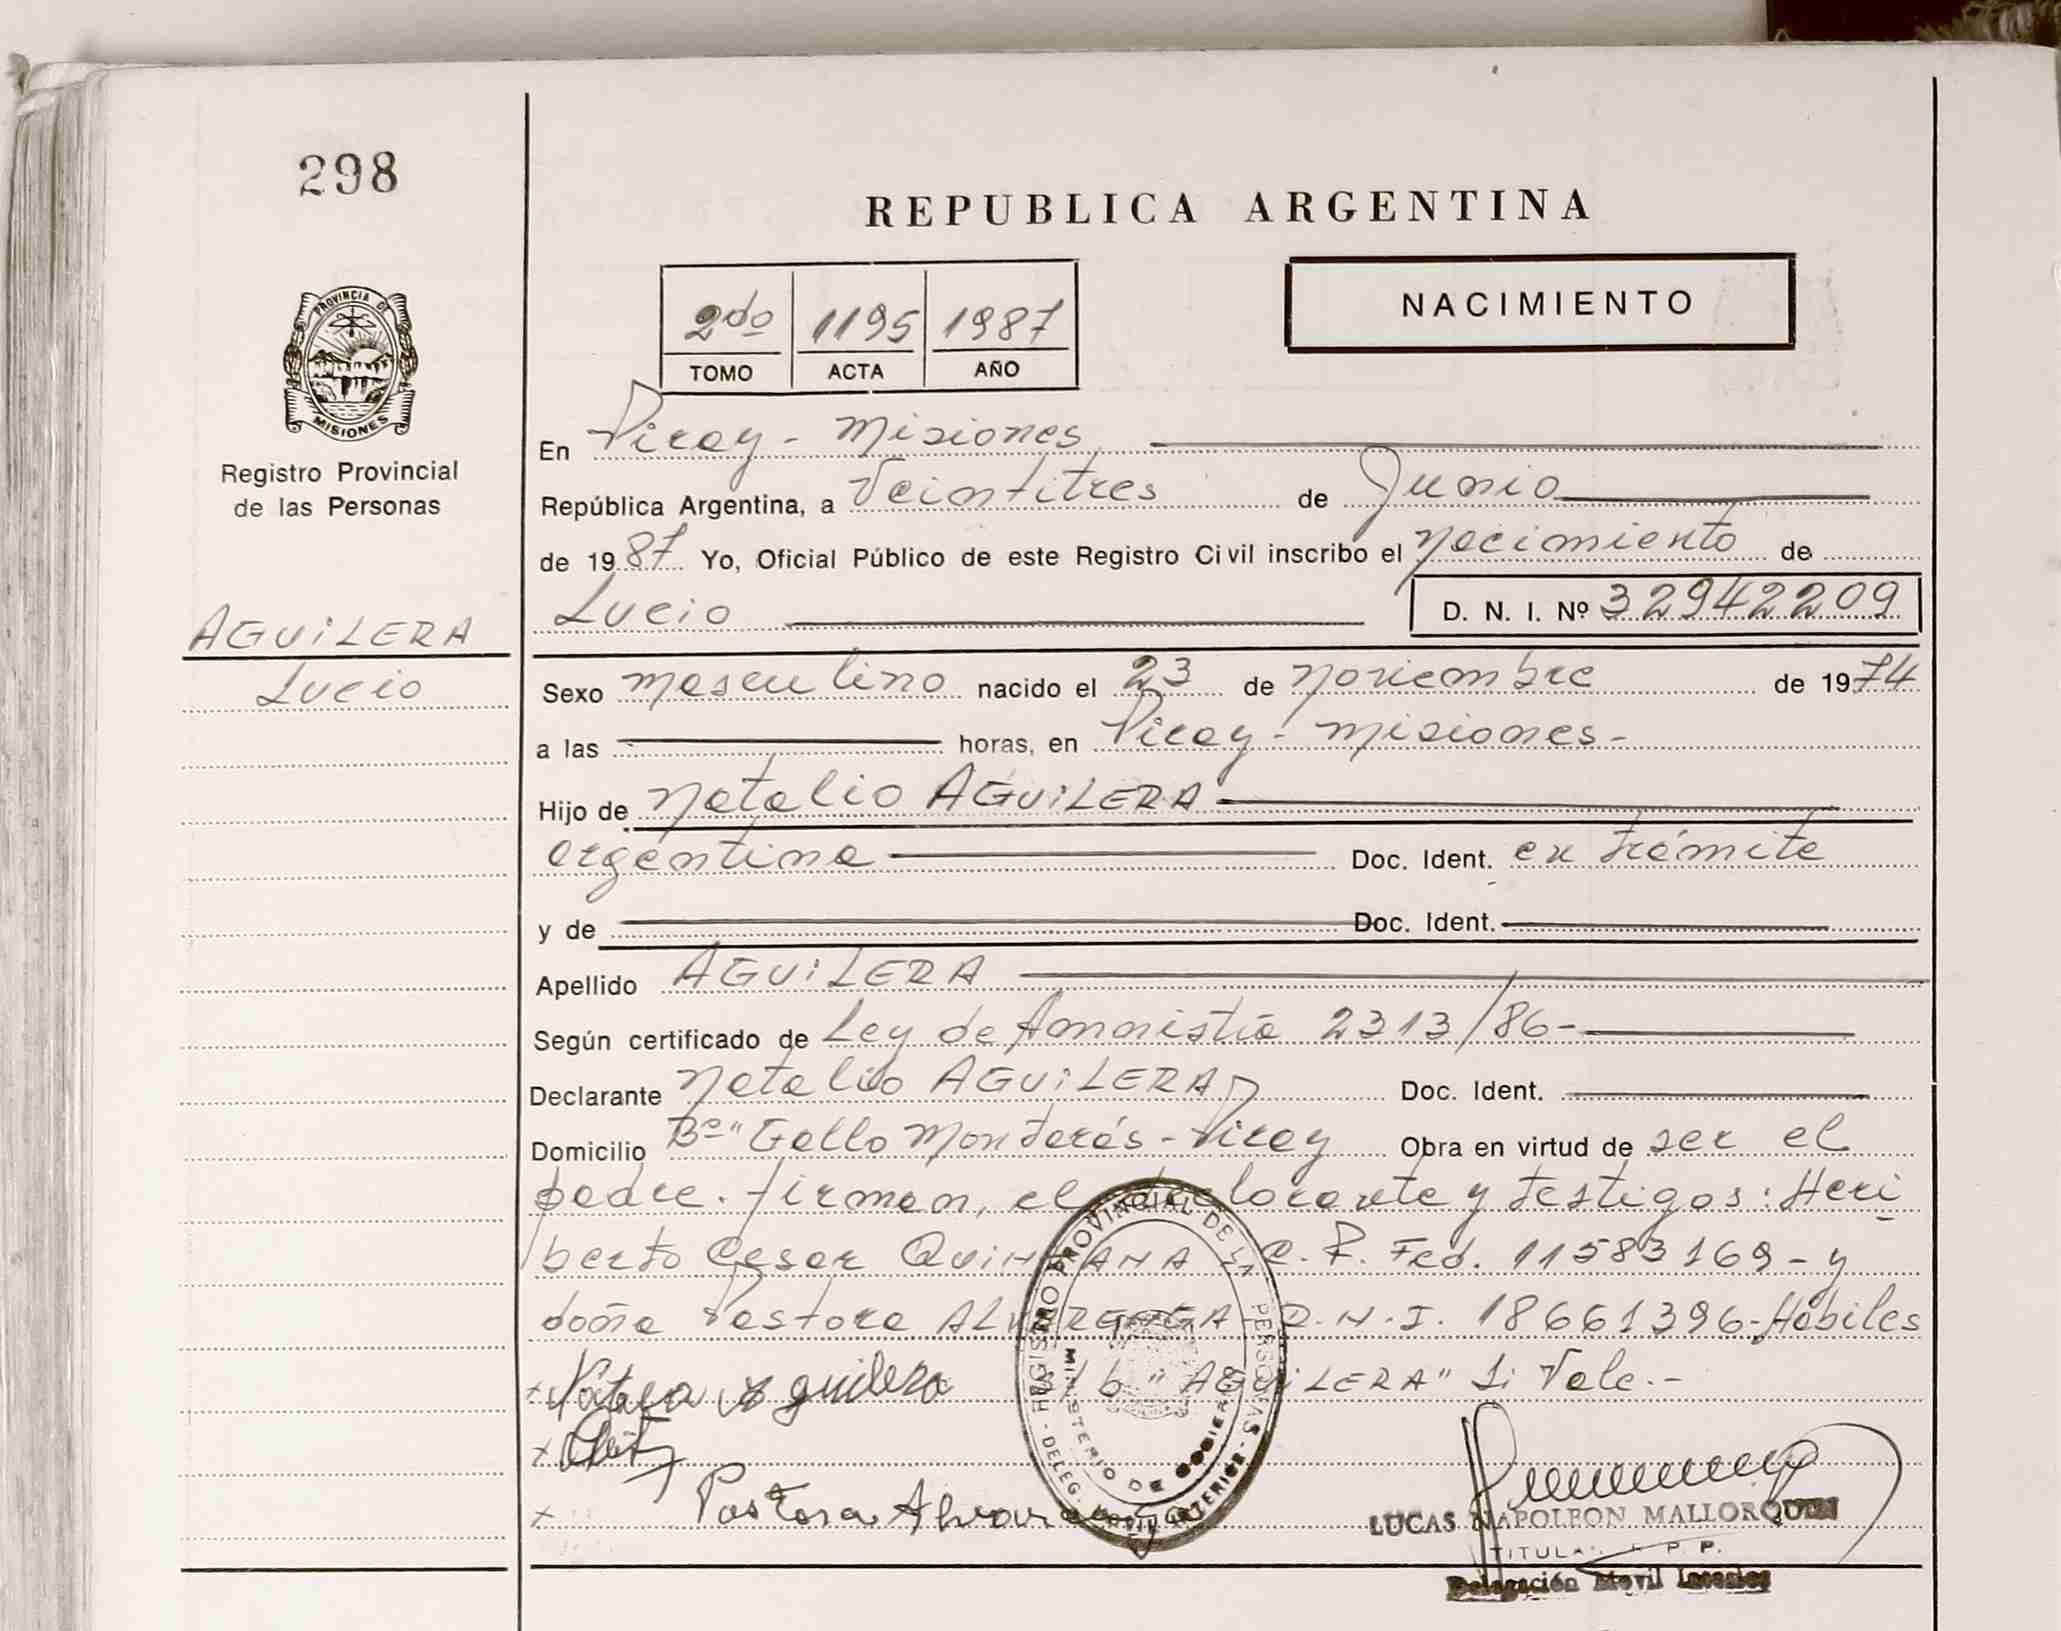 298
REPUBLICA ARGENTINA
2do 1195 1987
TOMO ACTA AÑO
NACIMIENTO
PROVINCIA DE
MISIONES
Registro Provincial
de las Personas
En Piray - Misiones
República Argentina, a Veintitres de Junio
de 1987 Yo, Oficial Público de este Registro Civil inscribo el nacimiento de
Lucio D. N. I. Nº 32942209
AGUiLERA
Lucio
Sexo masculino nacido el 23 de noviembre de 1974
a las horas, en Piray - Misiones -
Hijo de Natalio AGUiLERA
argentina Doc. Ident. en trámite
y de Doc. Ident.
Apellido AGUiLERA
Según certificado de Ley de Amnistía 2313/86-
Declarante Natalio AGUiLERA Doc. Ident.
Domicilio Bº" Gallo Monterás - Piray Obra en virtud de ser el
padre. firman, el declarante y testigos: Heri
berto Cesar QUiNTANA C. P. Fed. 11583169 - y
doña Pastora ALVARENGA D.N.I. 18661396-Hábiles
"AGUiLERA" Si Vale.-
x Aguilera
x
x Pastora
REGISTRO PROVINCIAL DE LAS PERSONAS
MINISTERIO DE GOBIERNO
LUCAS NAPOLEON MALLORQUIN
TITULAR R. P. P.
Delegación Movil